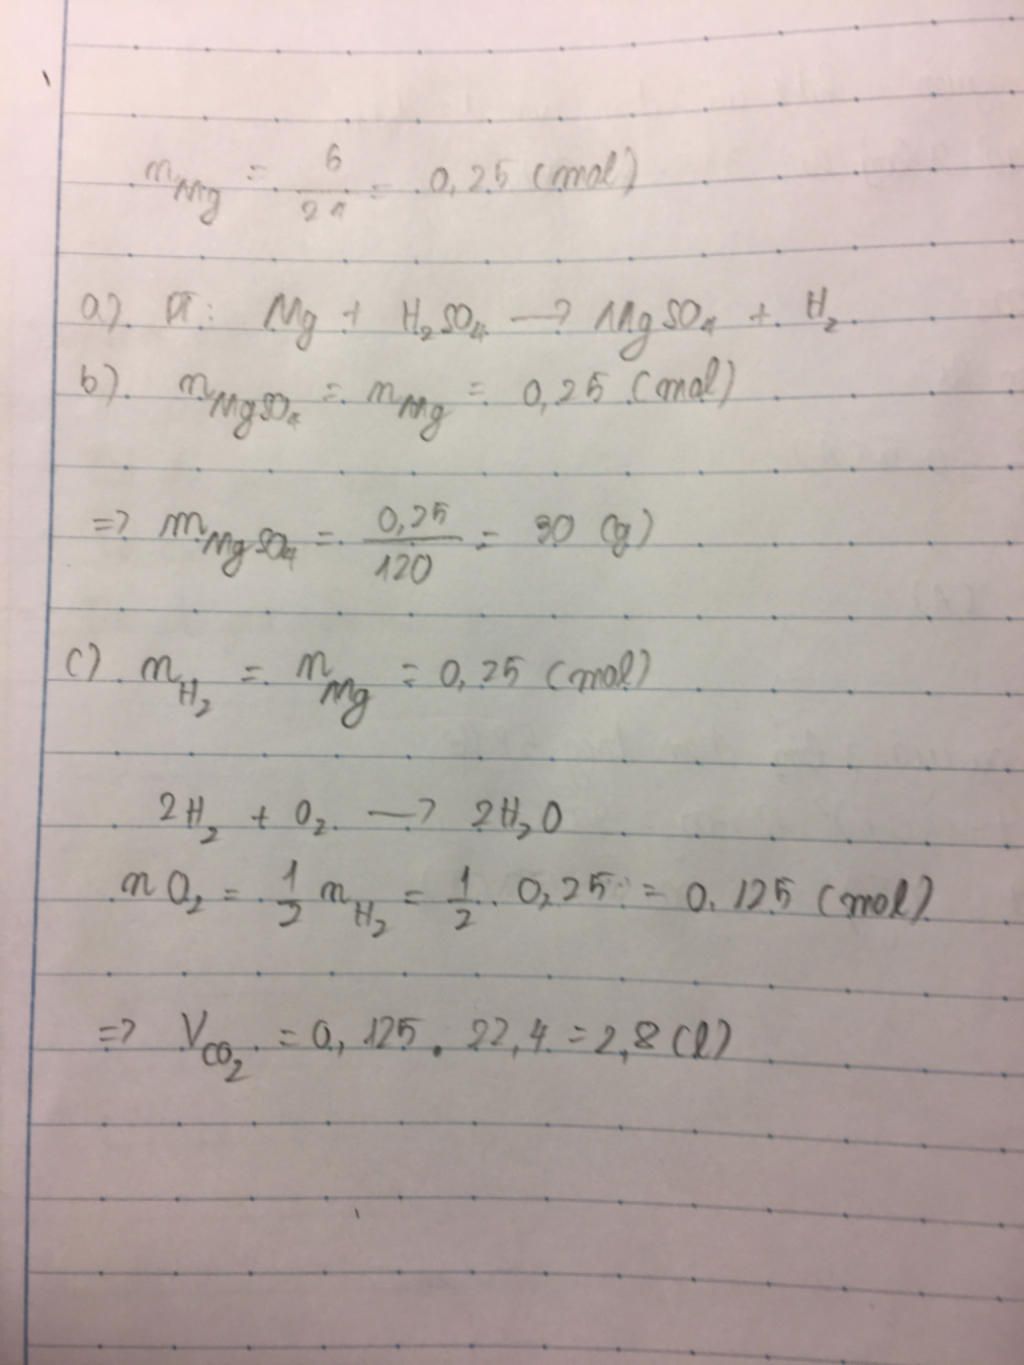 n_Mg = 6/24 = 0,25 (mol)
a). PT: Mg + H₂SO₄ → MgSO₄ + H₂
b). n_MgSO₄ = n_Mg = 0,25 (mol)
=> m_MgSO₄ = 0,25/120 = 30 (g)
c) n_H₂ = n_Mg = 0,25 (mol)
2H₂ + O₂ → 2H₂O
nO₂ = 1/2 n_H₂ = 1/2 . 0,25 = 0.125 (mol)
=> V_CO₂ = 0,125 . 22,4 = 2,8 (l)